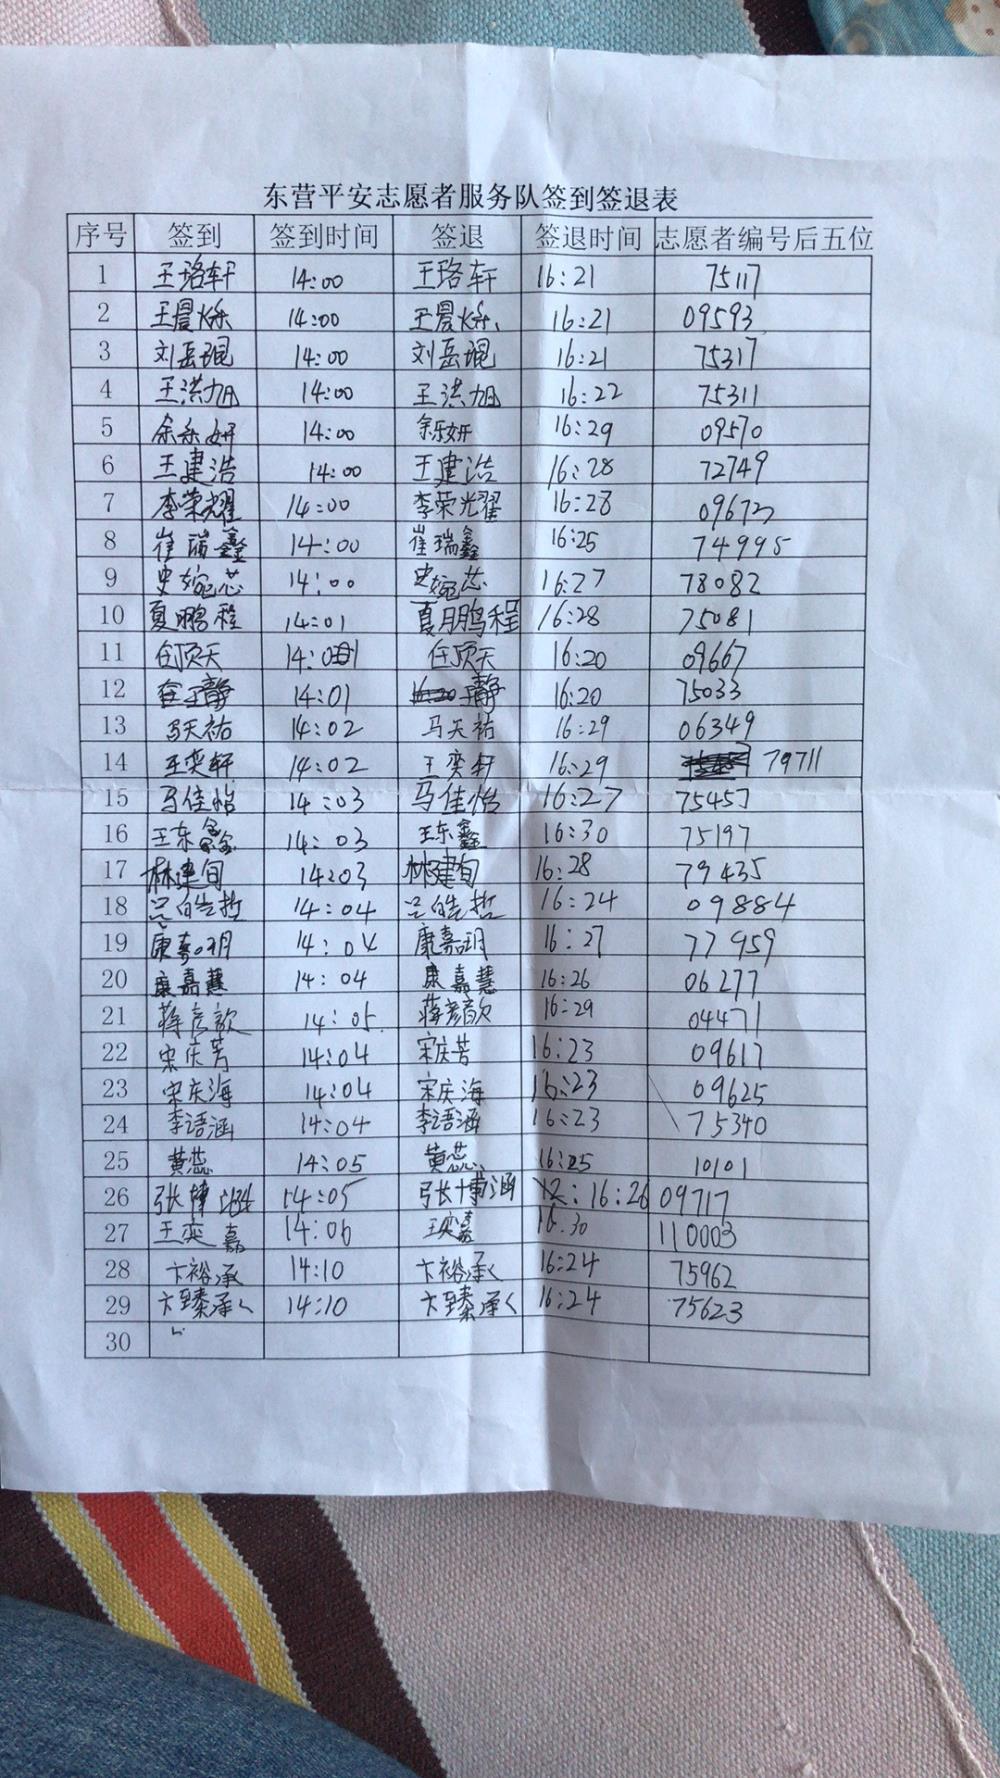 东营平安志愿者服务队签到签退表
序号 签到 签到时间 签退 签退时间 志愿者编号后五位
1 王珞轩 14:00 王珞轩 16:21 75117
2 王晨烁 14:00 王晨烁 16:21 09593
3 刘岳琨 14:00 刘岳琨 16:21 75317
4 王洪旭 14:00 王洪旭 16:22 75311
5 余乐妍 14:00 余乐妍 16:29 09570
6 王建浩 14:00 王建浩 16:28 72749
7 李荣耀 14:00 李荣耀 16:28 09673
8 崔瑞鑫 14:00 崔瑞鑫 16:25 74995
9 史婉芯 14:00 史婉芯 16:27 78082
10 夏鹏程 14:01 夏鹏程 16:28 75081
11 任顶天 14:01 任顶天 16:20 09667
12 静 14:01 静 16:20 75033
13 马天祐 14:02 马天祐 16:29 06349
14 王奕轩 14:02 王奕轩 16:29 79711
15 马佳怡 14:03 马佳怡 16:27 75457
16 王东鑫 14:03 王东鑫 16:30 75197
17 林建旬 14:03 林建旬 16:28 79435
18 吕皓哲 14:04 吕皓哲 16:24 09884
19 康嘉玥 14:04 康嘉玥 16:27 77959
20 康嘉慧 14:04 康嘉慧 16:26 06277
21 蒋彦歆 14:05 蒋彦歆 16:29 04471
22 宋庆芳 14:04 宋庆芳 16:23 09617
23 宋庆海 14:04 宋庆海 16:23 09625
24 李语涵 14:04 李语涵 16:23 75340
25 黄蕊 14:05 黄蕊 16:25 10101
26 张博涵 14:05 张博涵 16:26 09717
27 王奕嘉 14:06 王奕嘉 16:30 110003
28 卞裕承 14:10 卞裕承 16:24 75962
29 卞臻承 14:10 卞臻承 16:24 75623
30